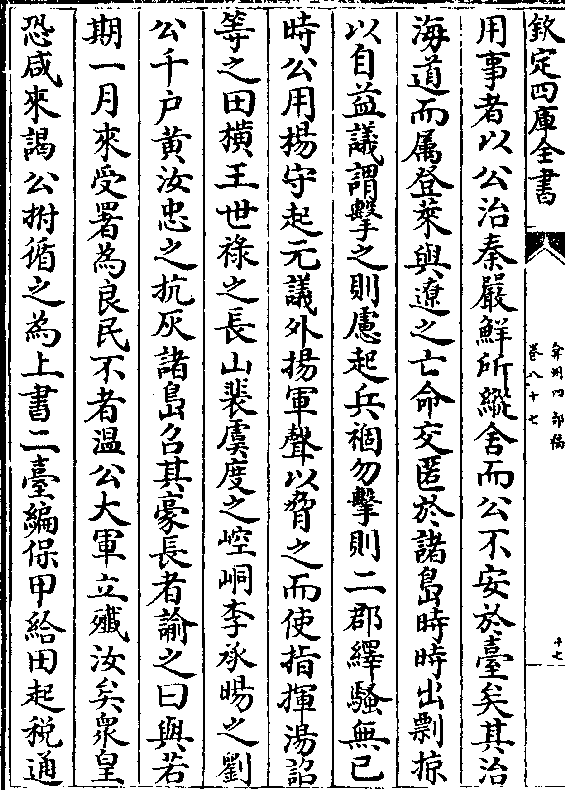 欽定四庫全書
弇州四部稿
卷八十七
十七
用事者以公治秦嚴鮮所縱舍而公不安於臺矣其治
海道而属登萊與遼之亡命交匿於諸島時時出剽掠
以自益議謂擊之則慮起兵禍勿擊則二郡繹騷無已
時公用楊守起元議外揚軍聲以脅之而使指揮湯詔
等之田横王世祿之長山裴虞度之崆峒李承暘之劉
公千户黄汝忠之抗灰諸島召其豪長者諭之曰與若
期一月來受署為良民不者温公大軍立殲汝矣衆皇
恐咸來謁公拊循之為上書二臺編保甲給田起税通